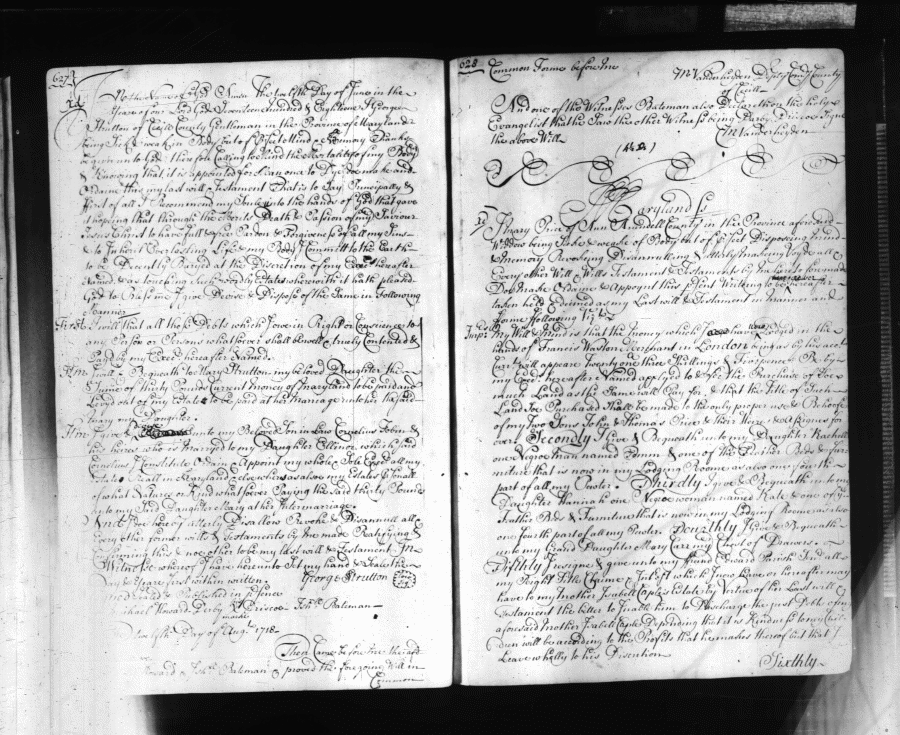 627
In the Name of God Amen The twelfth Day of June in the
Year of our Lord God Seventeen hundred & Eighteen I George
Strutton of Cecill County Gentleman in the Province of Maryland
being Sick & weak in Body but of Memory Thanks
be given unto God therefore Calling to mind the Mortality of my Body
& Knowing that it is appointed for Man once to Dye Doe make and
Ordaine this my last will & Testament That is to Say Principally &
first of all I Recommend my Soule into the hands of God that gave
it hoping that through the Merits Death & Passion of my Saviour
Jesus Christ to have full & free Pardon & Forgiveness of all my Sins
& to Inherit Everlasting Life & my Body I Committ to the Earth
to be Decently Buryed at the Discretion of my hereafter
Named & as touching Such worldly Estate wherewith it hath pleased
God to bless me I give Devise & Dispose of the Same in Following
Manner
First I will that all those Debts which I owe in Right or Conscience to
any Person or Persons whatsoever shall be well & truely Contented &
Paid by my hereafter Named.
Item I will & Bequeath to Mary Strutton my beloved Daughter the
Summ of thirty Pounds Current money of Maryland to be
Levyed out of my Estate to be paid at her Marriage unto her the said
Mary my Daughter.
Item I give & unto my Beloved Son in Law Cornelius Tobin &
his heires who is Married to my Daughter Ellinor which said
Cornelius I Constitute & Appoint my whole & Sole of all my
Estate Reall in Maryland or elsewhere as also my Estate Personall
of what Nature or Kind whatsoever Paying the said thirty Pounds
to my Said Daughter Mary at her Intermarriage.
And I Doe hereof utterly Disallow Revoke & Disannull all &
Every other former wills & Testaments by me made Ratifying &
Confirming this & noe other to be my last will & Testament In
Witness whereof I have hereunto Set my hand & Seale the
Day & Year first within written. George Strutton
& Published in
Michael Howard, Darby Driscoe Bateman
marke
twelfth Day of 1718.
Then Came before me the
Howard & Bateman & proved the foregoing Will in
Common
628
Common Forme before me
Vanderheyden County
of Cecill
And one of the Witnesses Bateman also Declared on the holy
Evangelist that he Saw the other Witness being Darby Driscoe Signe
the above Will.
Vanderheyden
Maryland
I Mary Price of Ann Arundell County in the Province aforesaid
Widdow being Sick & weake of Body but of Disposeing Mind
& Memory Revokeing Disannulling & Utterly makeing Voyd all &
Every other Will & Wills Testament & Testaments by me heretofore made
Doe Make Ordaine & Appoynt this Writing to be hereafter
taken held & Deemed as my Last will & Testament in manner and
forme following
My Will & Mind is that the Money which I have now Lodged in the
hands of Francis Waston Merchant in London being as by the
will appeare Twenty one three Shillings & Sixpence Be by
my hereafter Named applyed to & for the Purchase of Soe
much Land as the Same will Pay for & that the Title of Such
Land Soe Purchased Shall be made to the only proper use & Behoofe
of my two Sons John & Thomas Price & their Heires & Assignes for
ever. Secondly I Give & Bequeath unto my Daughter Rachell
one Negroe man named & one of the Feather Beds & fur-
niture that is now in my Lodging Roome as also one fourth
part of all my Pewter. Thirdly I give & Bequeath unto my
Daughter Hannah one Negroe woman named Kate & one of
Feather Beds & Furniture that is now in my Lodging Roome as also
one fourth part of all my Pewter. Fourthly I Give & Bequeath
unto my Grand Daughter Mary Carr my Chest of Drawers.
Fifthly I assigne & give unto my friend Edward Parish and all
my Right Title Claime & which I now have or hereafter may
have to my Mother Isabell Caple's Estate by Virtue of her Last will &
Testament the better to Inable him to Discharge the Just Debts of my
aforesaid Mother Isabell Caple Depending that his Kindness to my Chil-
dren will be according to the Profit that he makes thereof but that I
Leave wholly to his Discretion
Sixthly